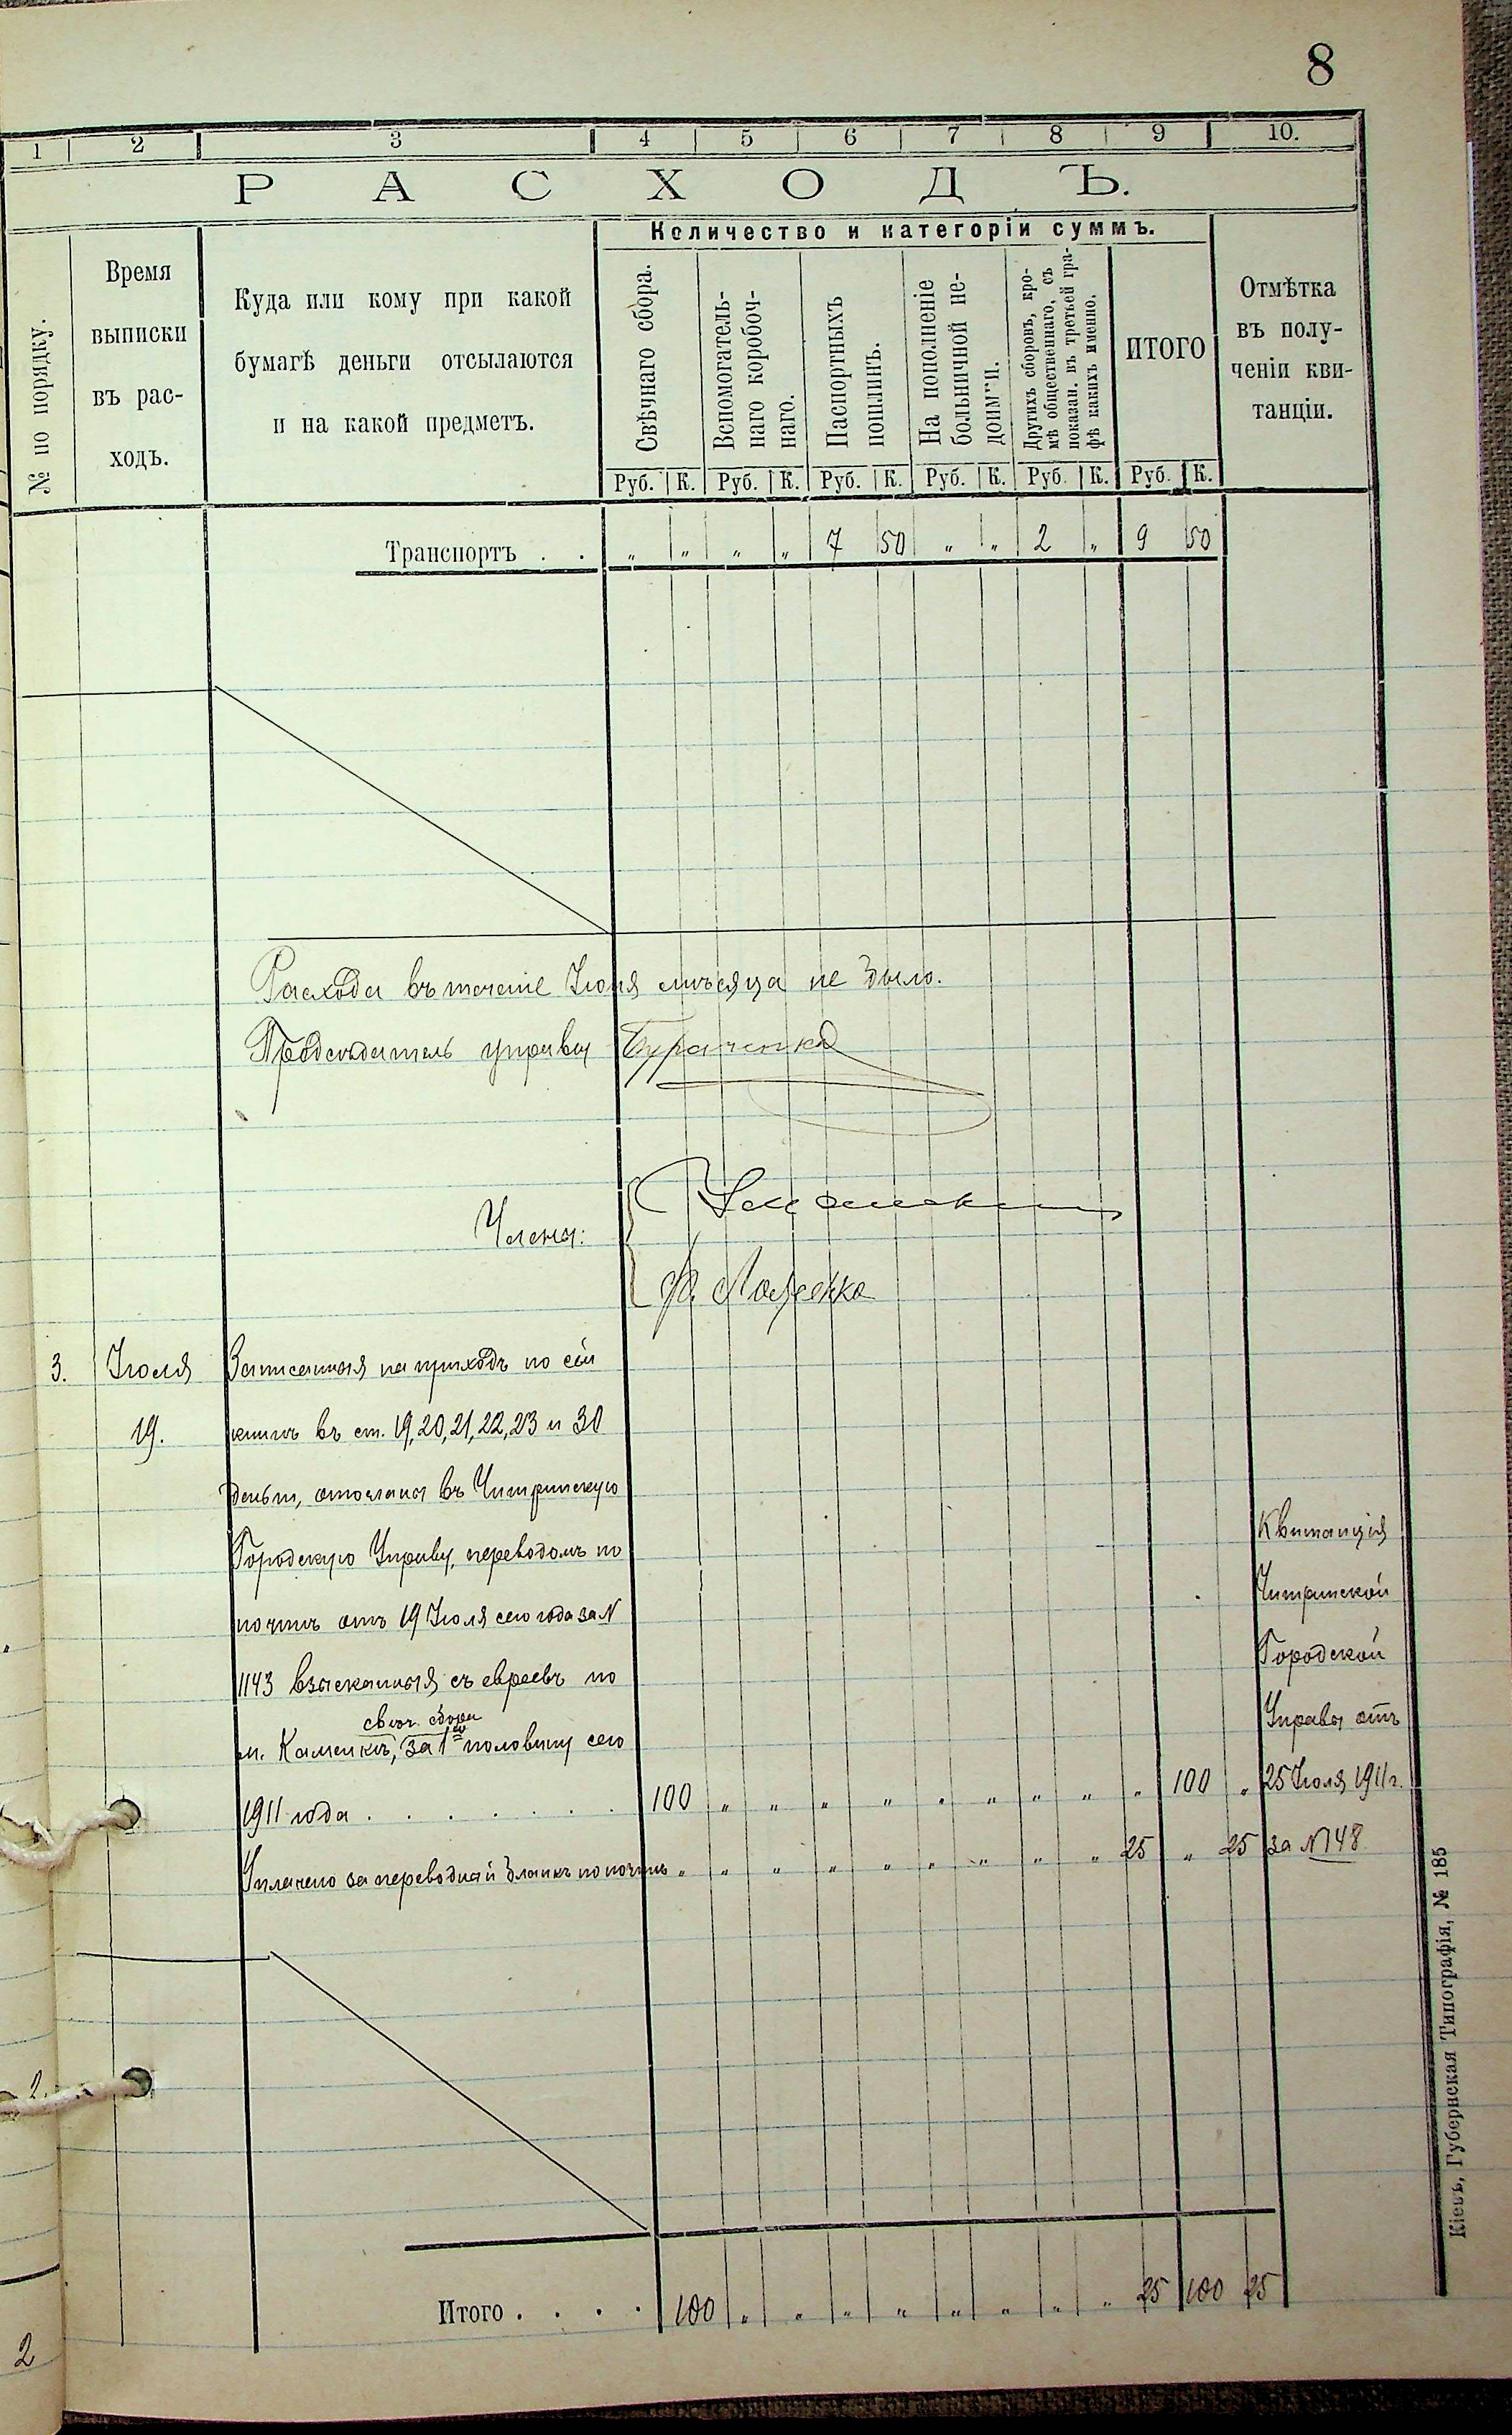 8
1 2 3 4 5 6 7 8 9 10.
РАСХОДЪ.
Количество и категоріи суммъ.
№ по порядку.
Время
выписки
въ рас-
ходъ.
Куда или кому при какой
бумагѣ деньги отсылаются
и на какой предметъ.
Свѣчнаго сбора.
Вспомогатель-
наго коробоч-
наго.
Паспортныхъ
пошлинъ.
На пополненіе
больничной не-
доимки.
Другихъ сборовъ, кро-
мѣ общественнаго, съ
показан. въ третьей гра-
фѣ какихъ именно.
ИТОГО
Отмѣтка
въ полу-
ченіи кви-
танціи.
Руб. К. Руб. К. Руб. К. Руб. К. Руб. К. Руб. К.
Транспортъ . . „ „ „ „ 7 50 „ „ 2 „ 9 50
Расхода въ теченіе Іюня мѣсяца не было.
Предсѣдатель управы
Члены:
3. Іюля Записанныя на приходъ по сей
19. книгѣ въ ст. 19, 20, 21, 22, 23 и 30
деньги, отосланы въ Чигринскую
Городскую Управу, переводомъ по
почтѣ отъ 19 Іюля сего года за N
1143 взысканныя съ евреевъ по
свѣч. сбора
м. Каменкѣ, за 1ю половину сего
1911 года . . . . . . . 100 „ „ „ „ „ „ „ „ „ 100 „
Уплачено за переводный бланкъ по почтѣ „ „ „ „ „ „ „ „ „ 25 „ 25
Квитанція
Чигринской
Городской
Управы отъ
25 Іюля 1911 г.
за N 148
Итого . . . . 100 „ „ „ „ „ „ „ „ 25 100 25
Кіевъ, Губернская Типографія, № 185
2
2